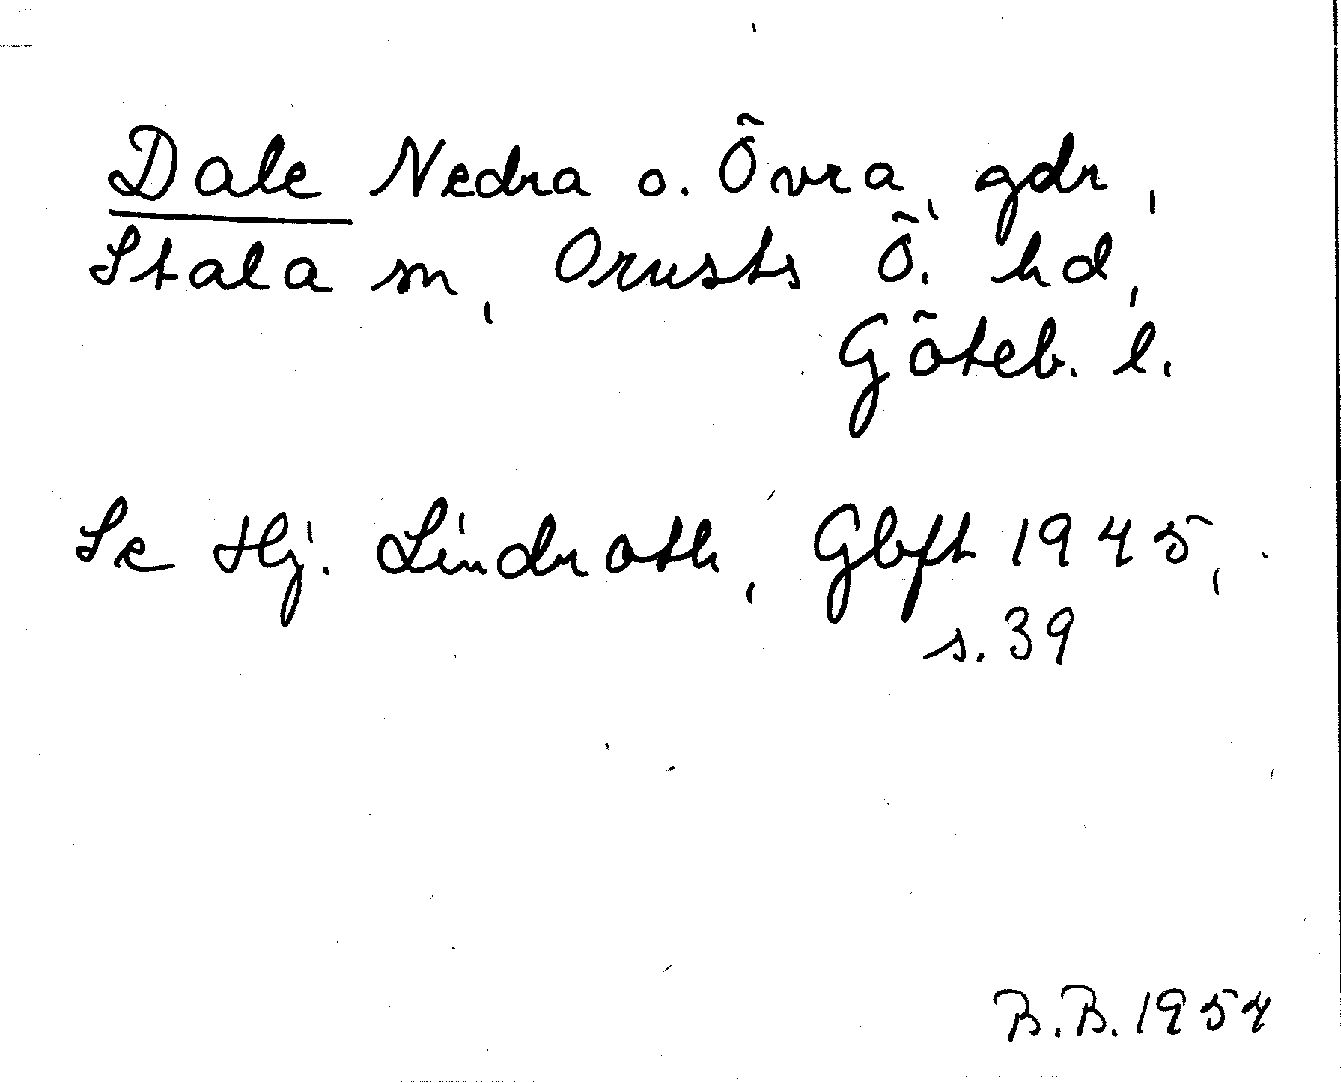 Dale Nedra o. Övra, gdr,
Stala sn, Orusts Ö. hd,
Göteb. l.
Se Hj. Lindroth, Gbft 1945,
s. 39
B.B. 1954